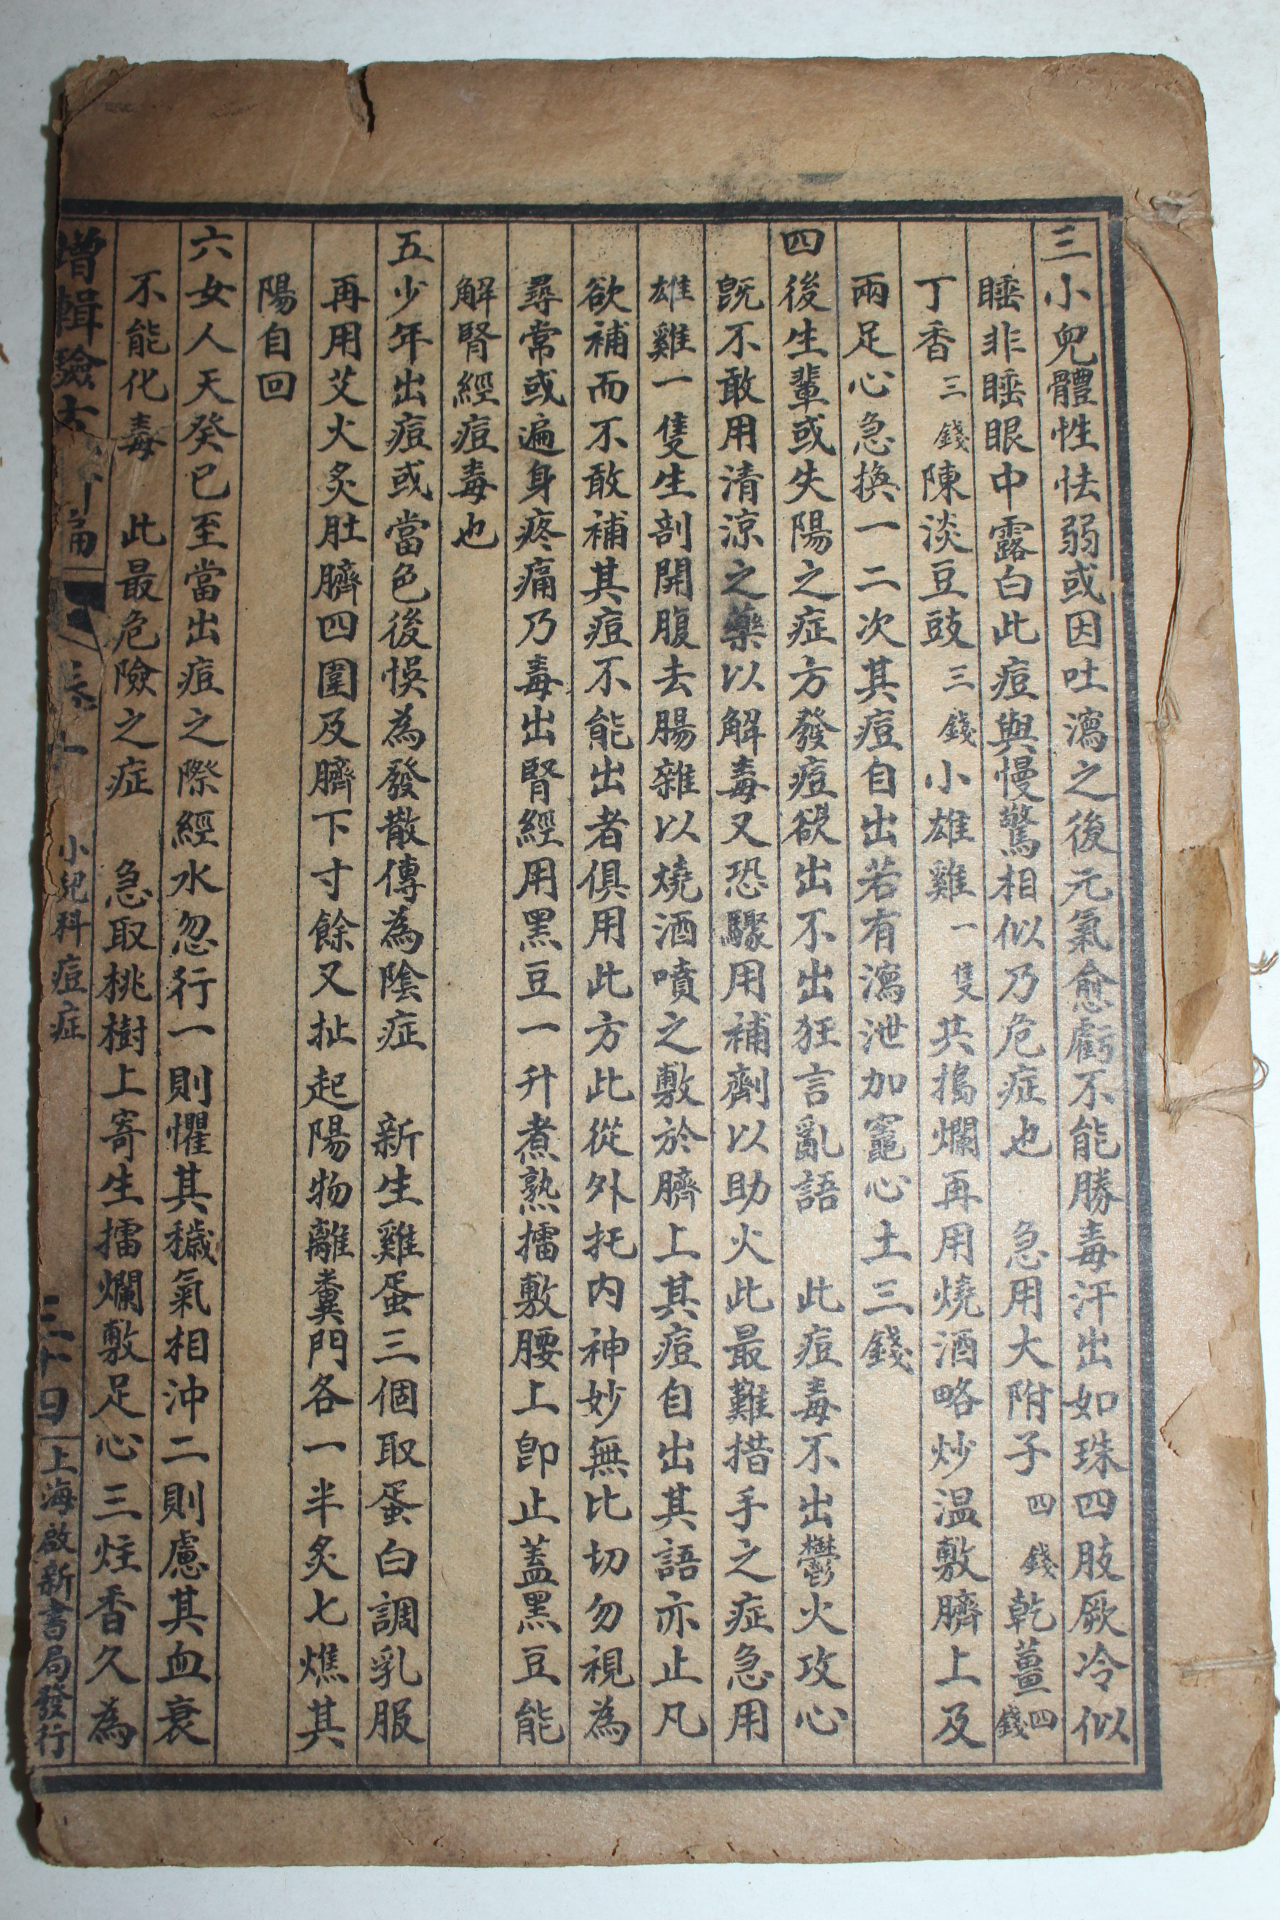 三小兒體性怯弱或因吐瀉之後元氣愈虧不能勝毒汗出如珠四肢厥冷似
睡非睡眼中露白此痘與慢驚相似乃危症也　急用大附子四錢乾薑四錢
丁香三錢陳淡豆豉三錢小雄雞一隻共搗爛再用燒酒略炒温敷臍上及
兩足心急換一二次其痘自出若有瀉泄加竈心土三錢
四後生輩或失陽之症方發痘欲出不出狂言亂語　此痘毒不出鬱火攻心
既不敢用清涼之藥以解毒又恐驟用補劑以助火此最難措手之症急用
雄雞一隻生剖開腹去腸雜以燒酒噴之敷於臍上其痘自出其語亦止凡
欲補而不敢補其痘不能出者俱用此方此從外托内神妙無比切勿視為
尋常或遍身疼痛乃毒出腎經用黑豆一升煮熟擂敷腰上卽止蓋黑豆能
解腎經痘毒也
五少年出痘或當色後悞為發散傳為陰症　新生雞蛋三個取蛋白調乳服
再用艾火炙肚臍四圍及臍下寸餘又扯起陽物離糞門各一半炙七燋其
陽自回
六女人天癸已至當出痘之際經水忽行一則懼其穢氣相沖二則慮其血衰
不能化毒　此最危險之症　急取桃樹上寄生擂爛敷足心三炷香久為
增輯驗方　編　卷十　小兒科痘症　三十四　上海啟新書局發行